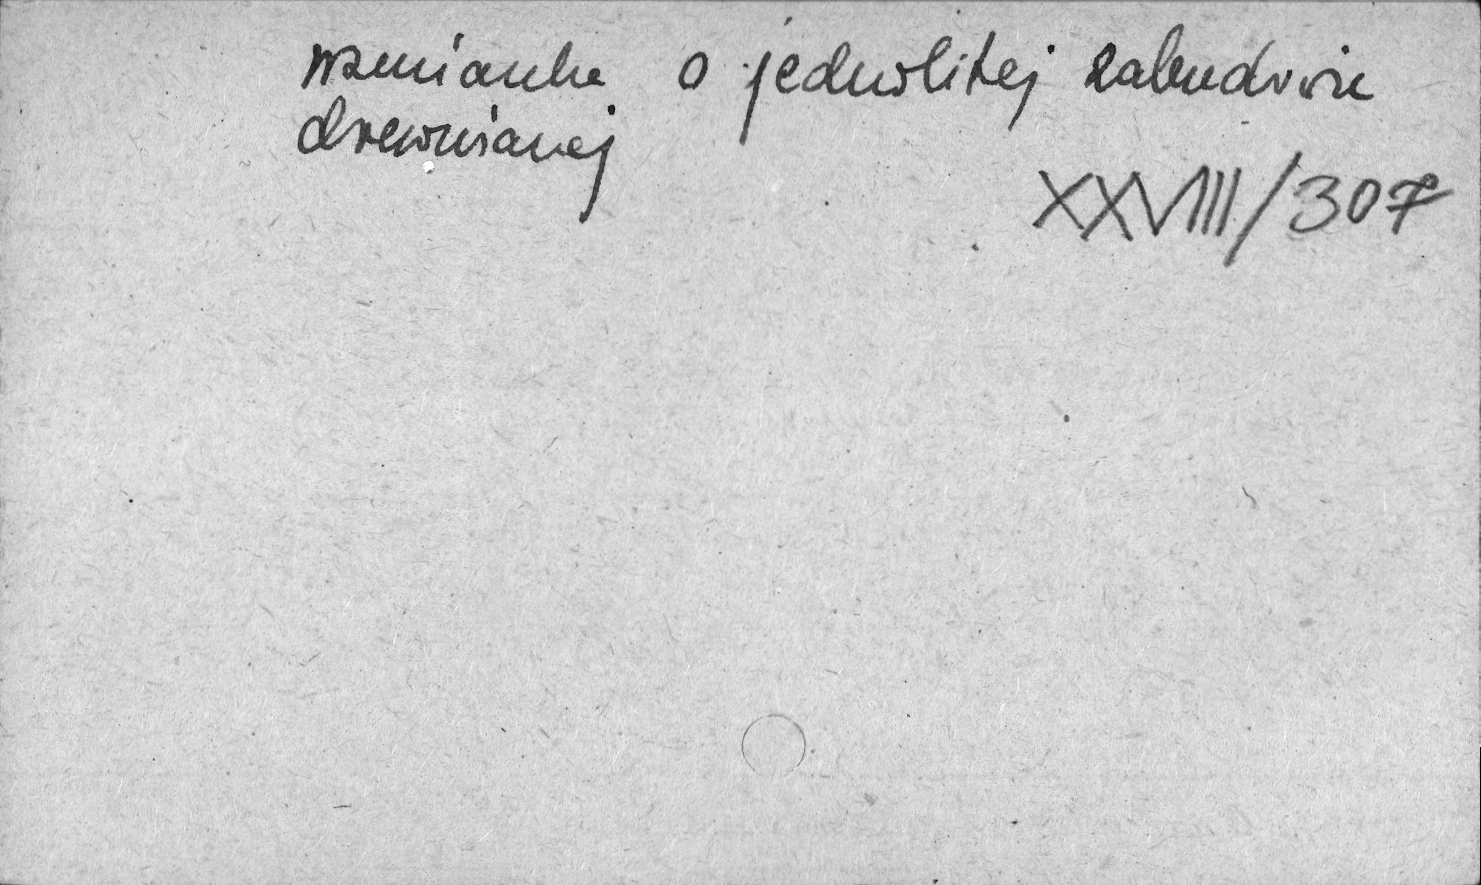 wzmianka o jednolitej zabudowie
drewnianej
XXVIII/307